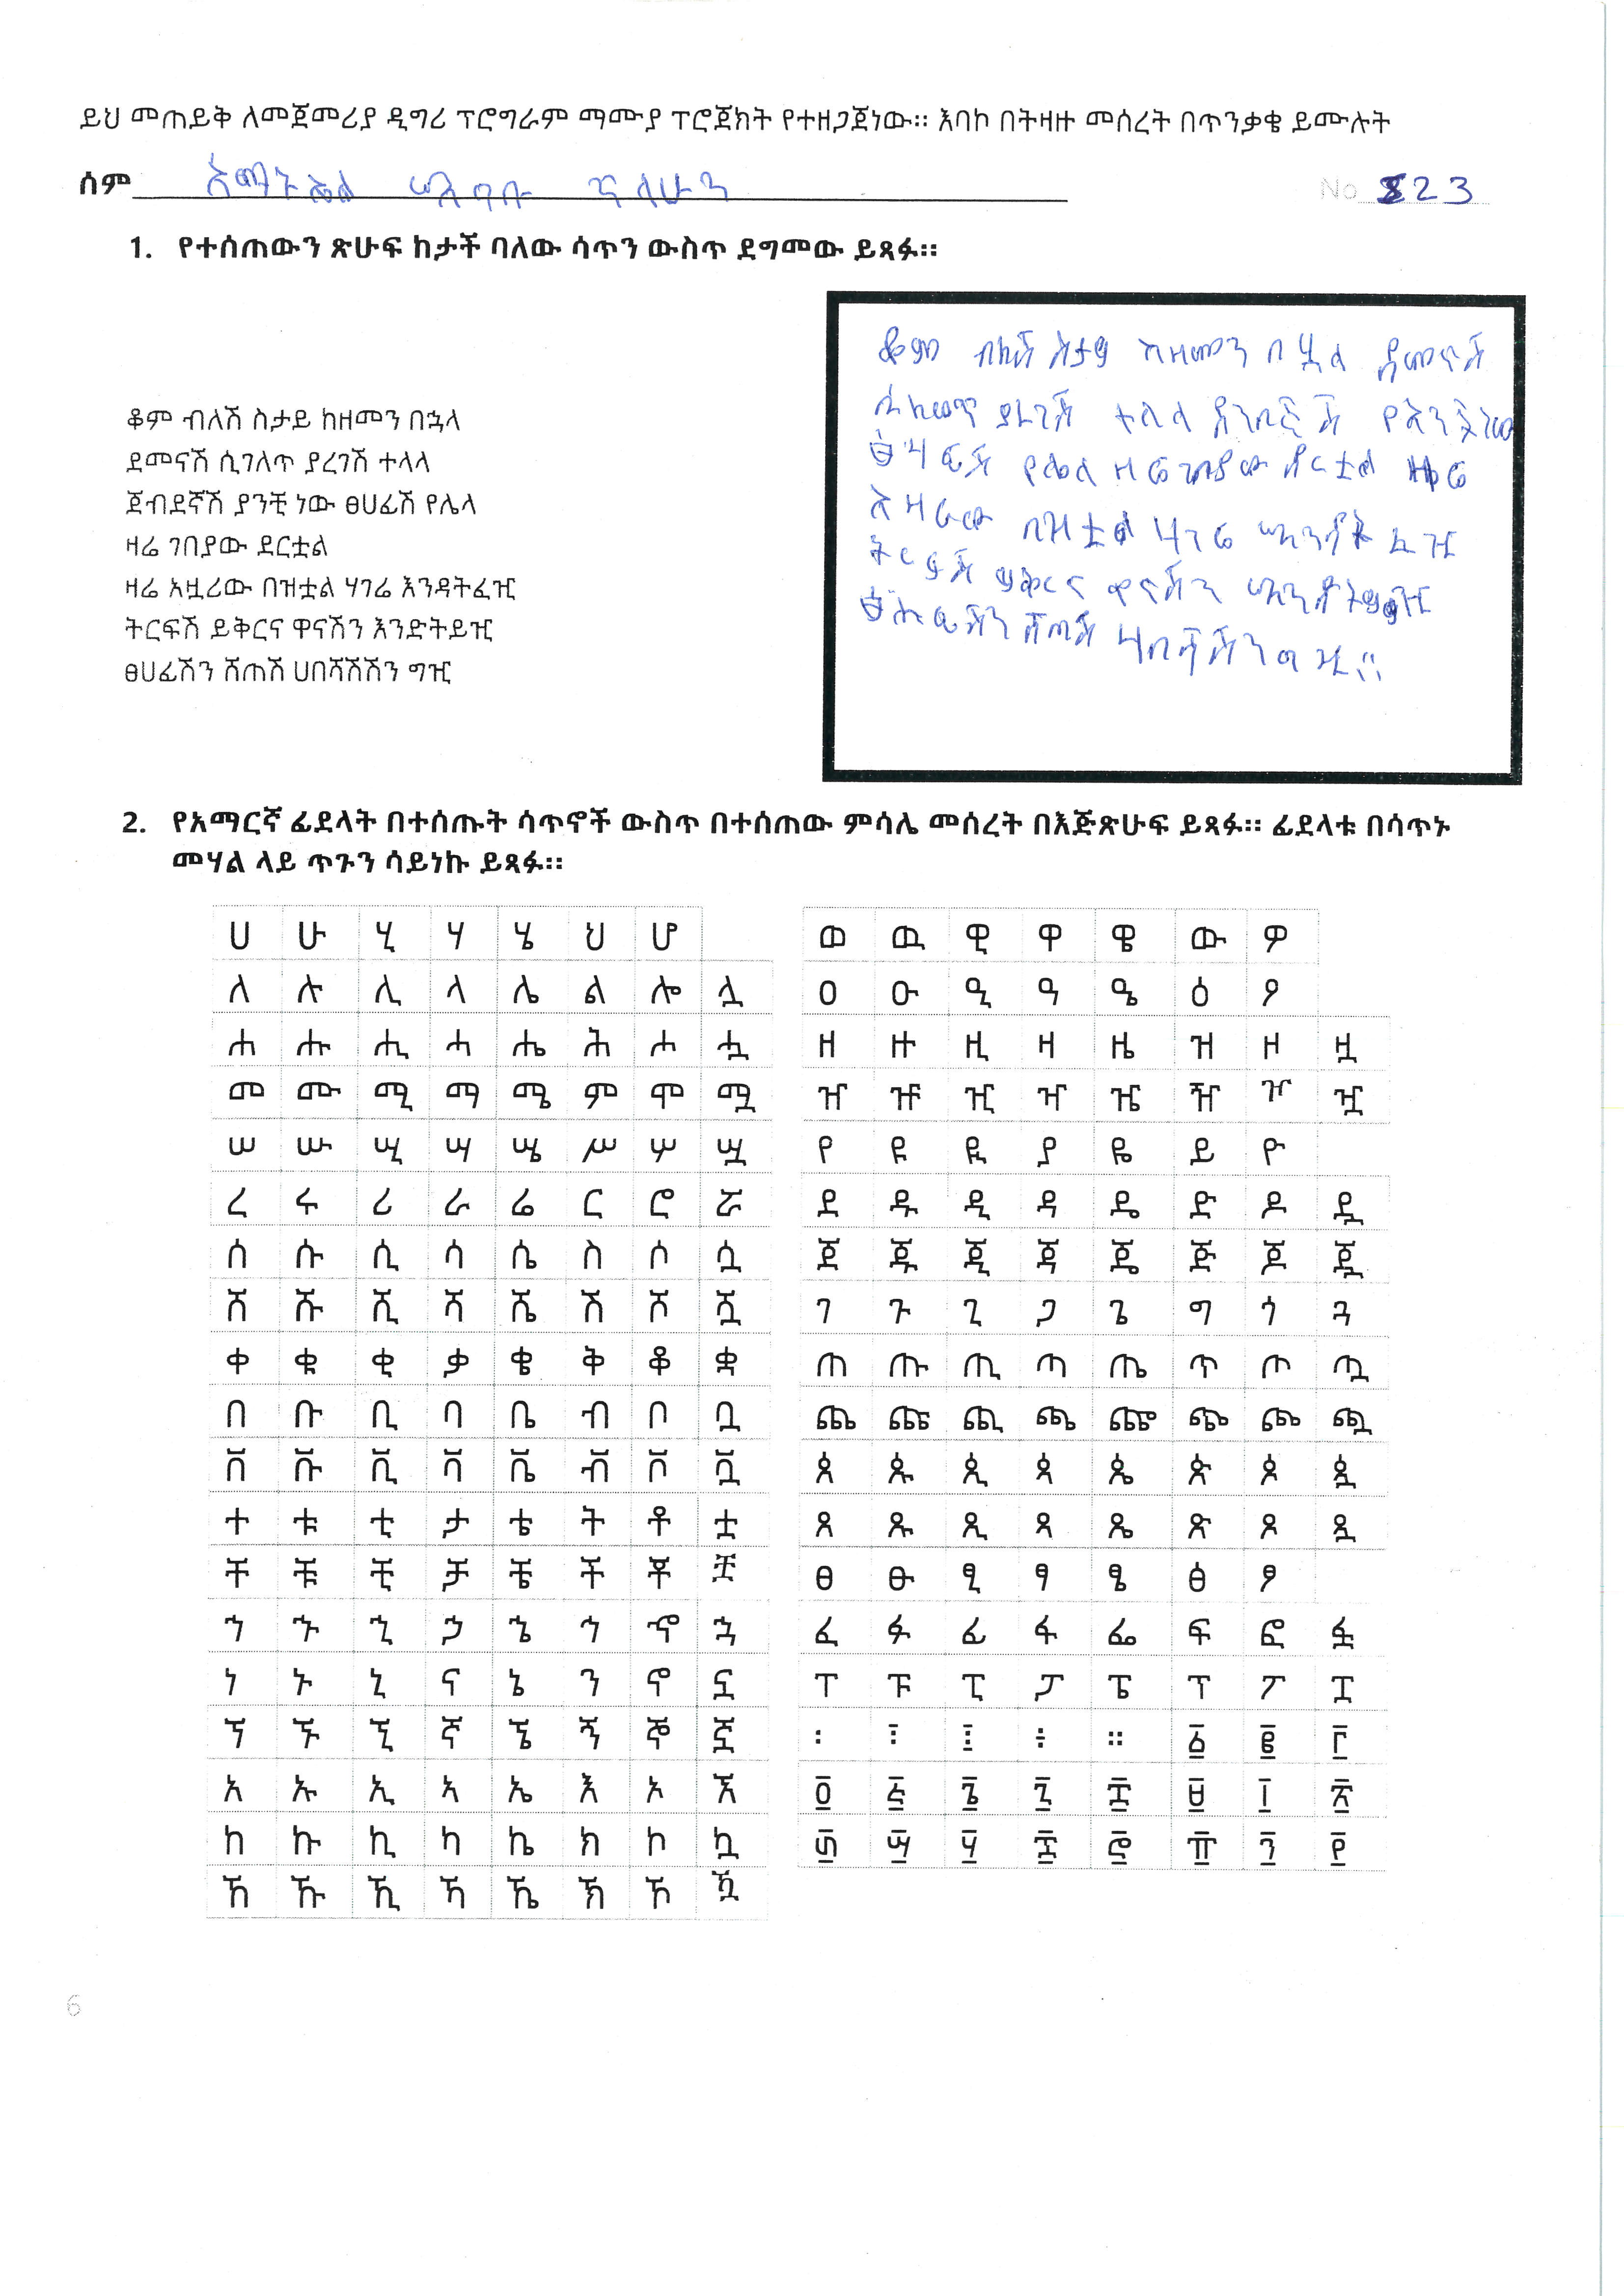 ይህ መጠይቅ ለመጀመሪያ ዲግሪ ፕሮግራም ማሙያ ፕሮጀክት የተዘጋጀነው። እባኮ በትዛዙ መሰረት በጥንቃቄ ይሙሉት
ስም አማኑኤል No 823
1. የተሰጠውን ጽሁፍ ከታች ባለው ሳጥን ውስጥ ደግመው ይጻፉ።
ቆም ብለሽ ስታይ ከዘመን በኋላ
ደመናሽ ሲገለጥ ያረገሽ ተላላ
ጀብደኛሽ ያንቺ ነው ፀሀፊሽ የሌላ
ዛሬ ገበያው ደርቷል
ዛሬ አዟሪው በዝቷል ሃገሬ እንዳትፈዢ
ትርፍሽ ይቅርና ዋናሽን እንድትይዢ
ፀሀፊሽን ሸጠሽ ሀበሻሽሽን ግዢ
ቆም ብለሽ ስታይ ከዘመን በኋላ ደመናሽ
ያረገሽ ተላላ
የሌላ ዛሬ ገበያው ደርቷል ዛሬ
በዝቷል ሃገሬ
ትርፍሽ ይቅርና ዋናሽን
ሸጠሽ
2. የአማርኛ ፊደላት በተሰጡት ሳጥኖች ውስጥ በተሰጠው ምሳሌ መሰረት በእጅጽሁፍ ይጻፉ። ፊደላቱ በሳጥኑ
መሃል ላይ ጥጉን ሳይነኩ ይጻፉ።
ሀ ሁ ሂ ሃ ሄ ህ ሆ
ለ ሉ ሊ ላ ሌ ል ሎ ሏ
ሐ ሑ ሒ ሓ ሔ ሕ ሖ ሗ
መ ሙ ሚ ማ ሜ ም ሞ ሟ
ሠ ሡ ሢ ሣ ሤ ሥ ሦ ሧ
ረ ሩ ሪ ራ ሬ ር ሮ ሯ
ሰ ሱ ሲ ሳ ሴ ስ ሶ ሷ
ሸ ሹ ሺ ሻ ሼ ሽ ሾ ሿ
ቀ ቁ ቂ ቃ ቄ ቅ ቆ ቋ
በ ቡ ቢ ባ ቤ ብ ቦ ቧ
ቨ ቩ ቪ ቫ ቬ ቭ ቮ ቯ
ተ ቱ ቲ ታ ቴ ት ቶ ቷ
ቸ ቹ ቺ ቻ ቼ ች ቾ ቿ
ኀ ኁ ኂ ኃ ኄ ኅ ኆ ኋ
ነ ኑ ኒ ና ኔ ን ኖ ኗ
ኘ ኙ ኚ ኛ ኜ ኝ ኞ ኟ
አ ኡ ኢ ኣ ኤ እ ኦ ኧ
ከ ኩ ኪ ካ ኬ ክ ኮ ኳ
ኸ ኹ ኺ ኻ ኼ ኽ ኾ ዃ
ወ ዉ ዊ ዋ ዌ ው ዎ
ዐ ዑ ዒ ዓ ዔ ዕ ዖ
ዘ ዙ ዚ ዛ ዜ ዝ ዞ ዟ
ዠ ዡ ዢ ዣ ዤ ዥ ዦ ዧ
የ ዩ ዪ ያ ዬ ይ ዮ
ደ ዱ ዲ ዳ ዴ ድ ዶ ዷ
ጀ ጁ ጂ ጃ ጄ ጅ ጆ ጇ
ገ ጉ ጊ ጋ ጌ ግ ጎ ጓ
ጠ ጡ ጢ ጣ ጤ ጥ ጦ ጧ
ጨ ጩ ጪ ጫ ጬ ጭ ጮ ጯ
ጰ ጱ ጲ ጳ ጴ ጵ ጶ ጷ
ጸ ጹ ጺ ጻ ጼ ጽ ጾ ጿ
ፀ ፁ ፂ ፃ ፄ ፅ ፆ
ፈ ፉ ፊ ፋ ፌ ፍ ፎ ፏ
ፐ ፑ ፒ ፓ ፔ ፕ ፖ ፗ
፡ ፣ ፤ ÷ ። ፩ ፪ ፫
፬ ፭ ፮ ፯ ፰ ፱ ፲ ፳
፴ ፵ ፶ ፷ ፸ ፹ ፺ ፻
6